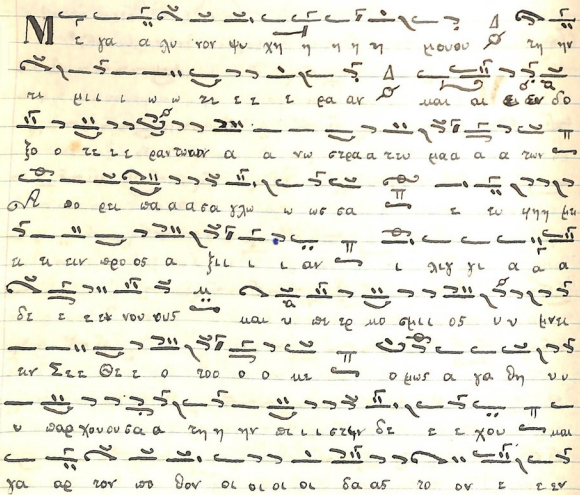 Μ ε γα α λυ νον ψυ χη η η η η μουου τη ην
τι μιι ι ω ω τε ε ε ε ρα αν και αι εν δο
ξο ο τε ε ε ραντωων α α νω στρα α τευ μαα α α των
Α πο ρει πα α α σα γλω ω ωσ σα ε ευ φηη μει
ει ει ειν προ ος α ξιι ι ι αν ι λιγ γι α α α
δε ε ε νου ουους και υ πε ερ κο σμιι ος υ υ μνει
ειν Σεε Θεε ε ο τοο ο ο κε ο μως α γα θη υ υ
υ παρ χουουσα α τη η ην πι ι ι στιν δε ε ε χου και
γα αρ τον πο θον οι οι οι οι δα ας το ον ε ε εν